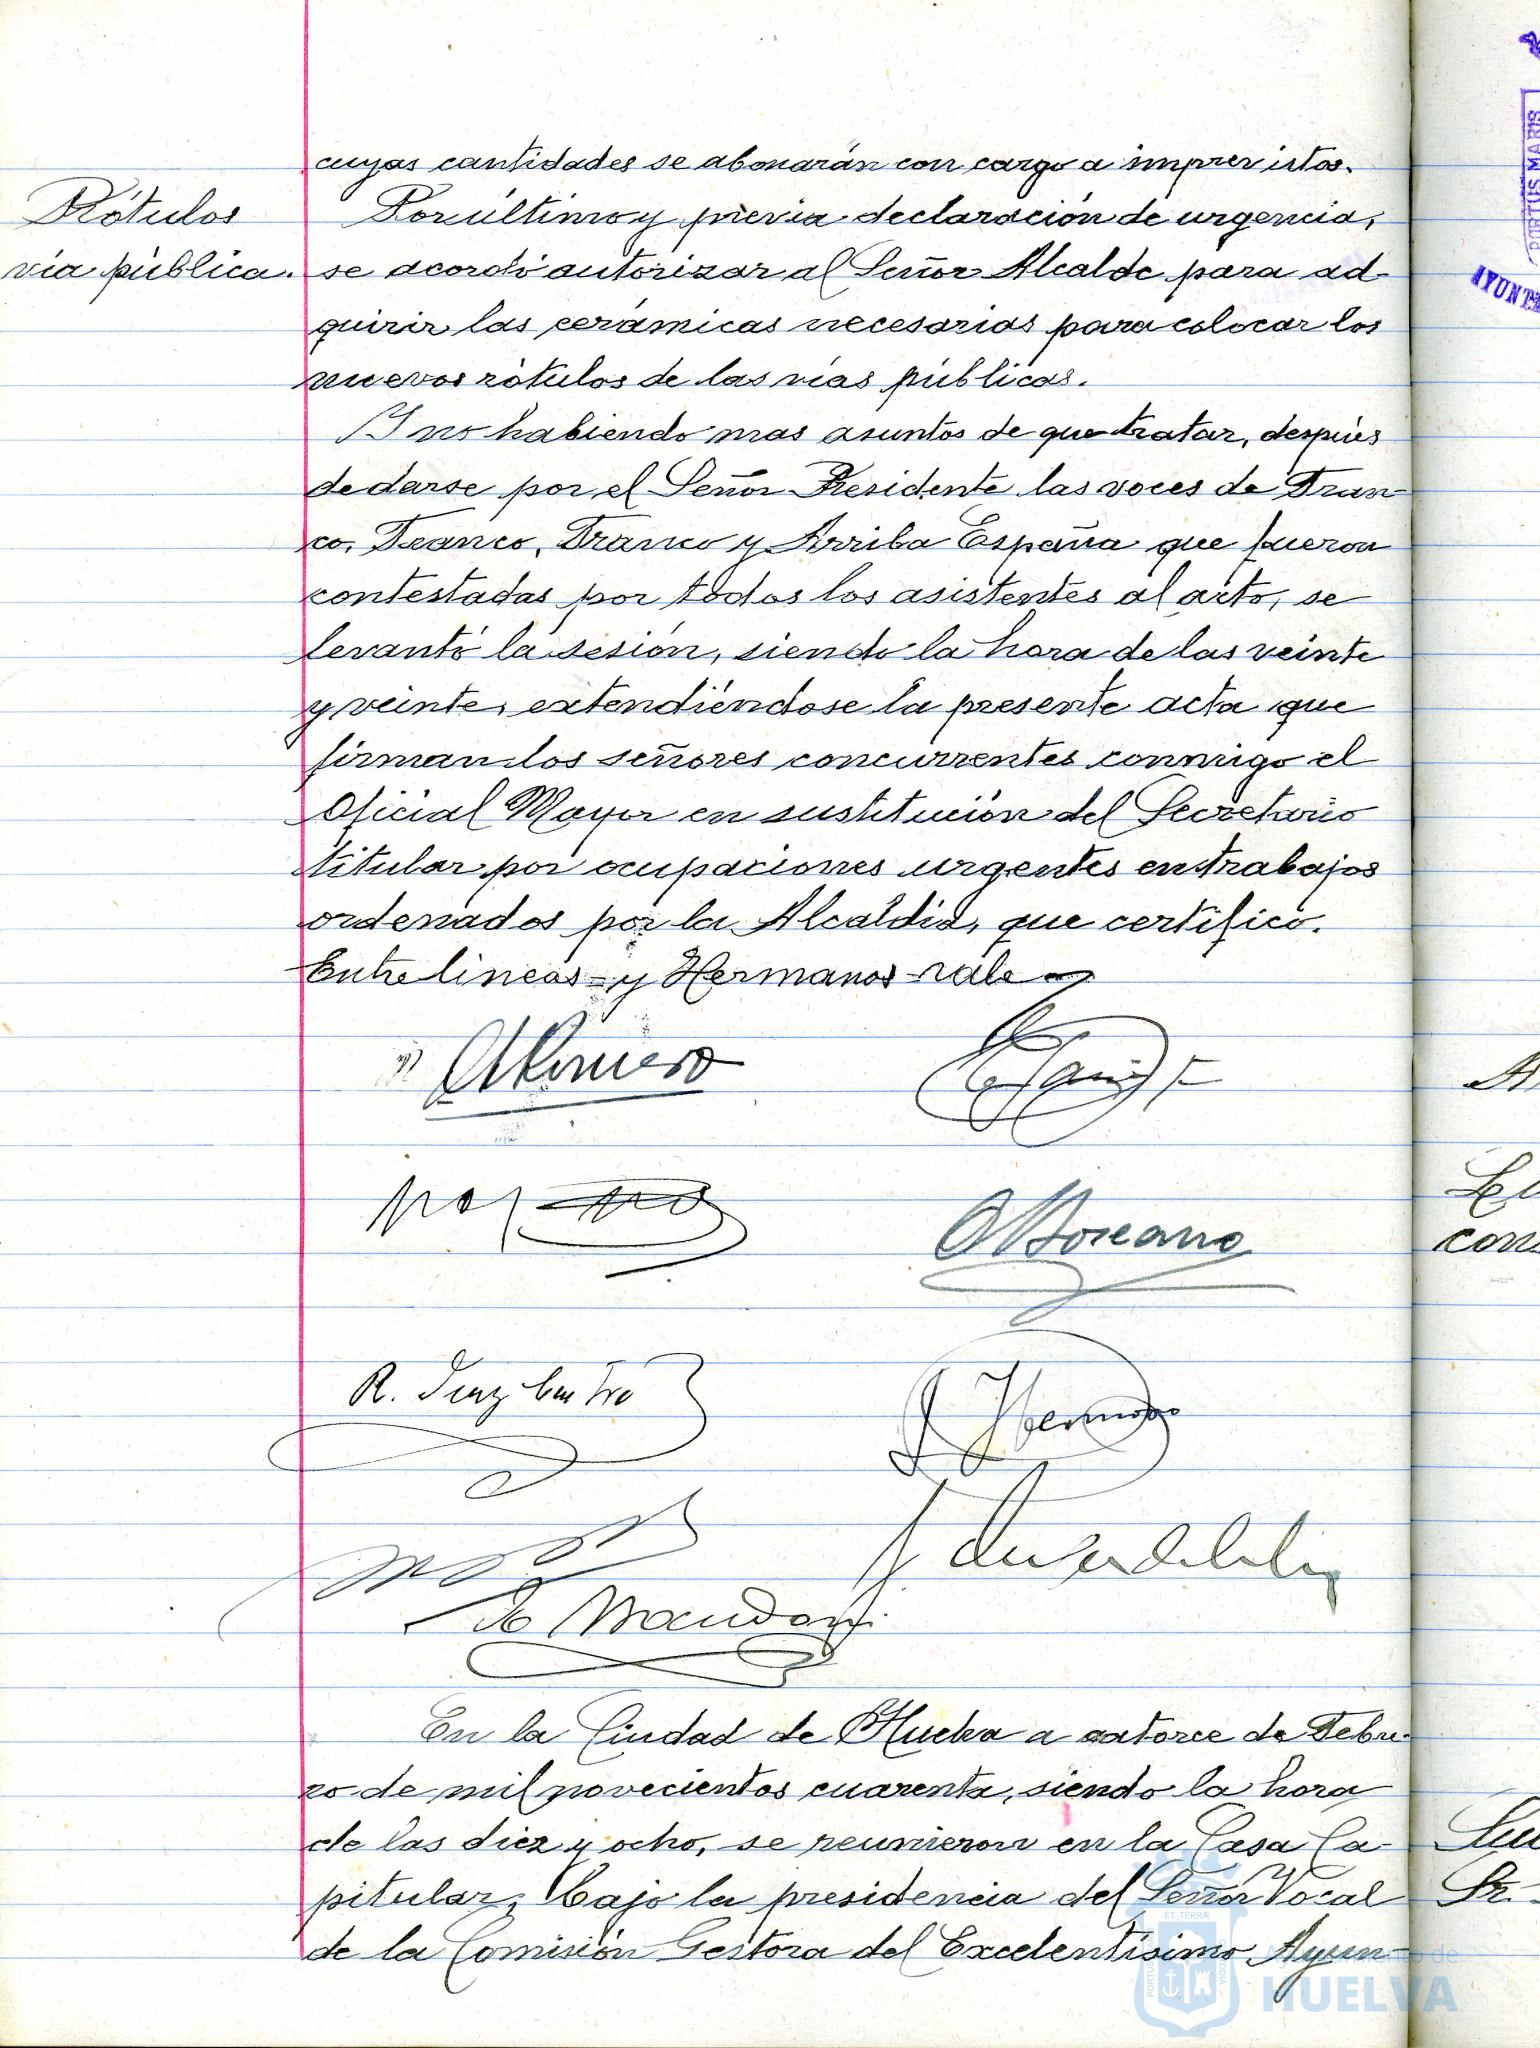 cuyas cantidades se abonarán con cargo a imprevistos.
Rótulos
vía pública.
Por último y previa declaración de urgencia,
se acordó autorizar al Señor Alcalde para ad-
quirir las cerámicas necesarias para colocar los
nuevos rótulos de las vías públicas.
Y no habiendo mas asuntos de que tratar, despues
de darse por el Señor Presidente las voces de Fran-
co, Franco, Franco y Arriba España que fueron
contestadas por todos los asistentes al acto, se
levantó la sesión, siendo la hora de las veinte
y veinte, extendiéndose la presente acta que
firman los señores concurrentes conmigo el
Oficial Mayor en sustitución del Secretario
titular por ocupaciones urgentes en trabajos
ordenados por la Alcaldía, que certifico.
Entre lineas - y Hermanos - vale
A Romero
R. Diaz
J. Hermoso
En la Ciudad de Huelva a catorce de Febre-
ro de mil novecientos cuarenta, siendo la hora
de las diez y ocho, se reunieron en la Casa Ca-
pitular, bajo la presidencia del Señor Vocal
de la Comisión Gestora del Excelentísimo Ayun-
PORTUS MARIS
AYUNT
HUELVA